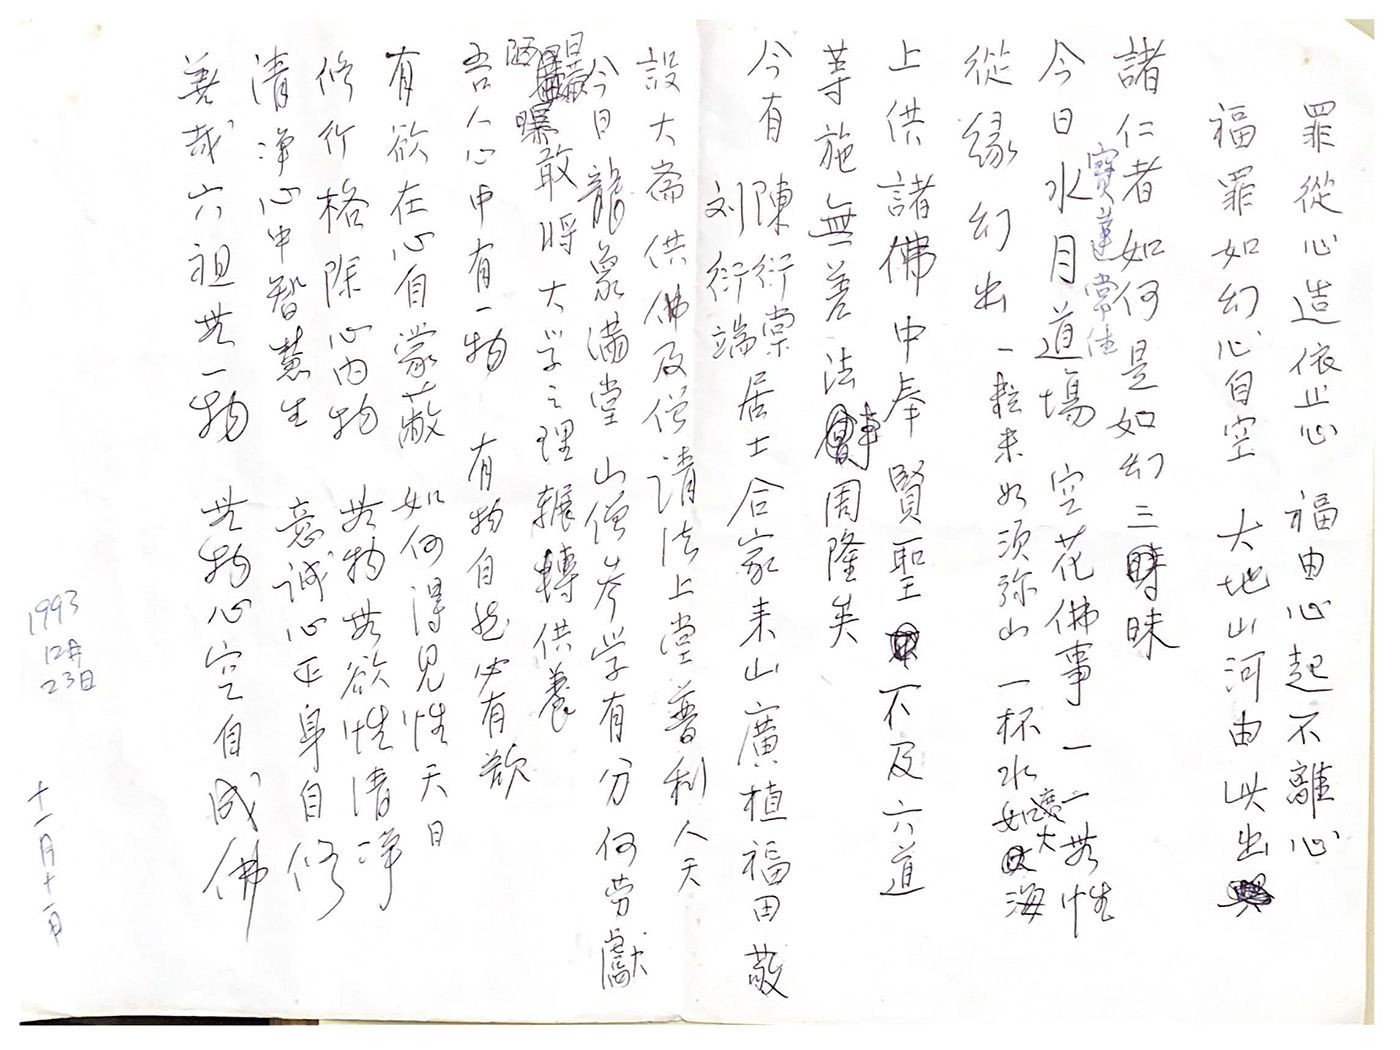 罪從心造依止心 福由心起不離心
福罪如幻心自空 大地山河由此出
諸仁者如何是如幻三昧
寶蓮常住
今日水月道場 空花佛事 一一無性
從緣幻出 一粒米如須弥山 一杯水如廣大海
上供諸佛中奉賢聖不及六道
等施無善法事周隆矣
今有 陳衍棠
刘衍端 居士合家来山廣植福田敬
設大齋供佛及僧請法上堂普利人天
今日龍象满堂 山僧岑学有分何劳獻
陋曝敢將大学之理輾轉供養
吾人心中有一物 有物自然必有欲
有欲在心自蒙蔽 如何得見性天日
修行格除心内物 无物无欲性清净
清净心中智慧生 意诚心正身自修
善哉六祖无一物 无物心空自成佛
1993
12月
23日
十一月十一日